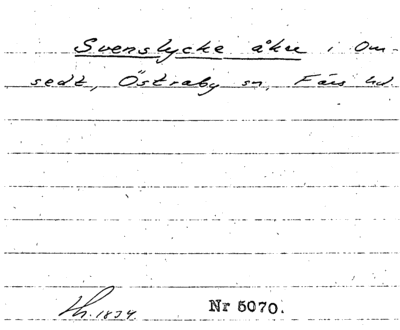 Svenslycke åkre i Om-
sedt, Östraby sn, Färs hd.
Lh. 1834 Nr 5070.